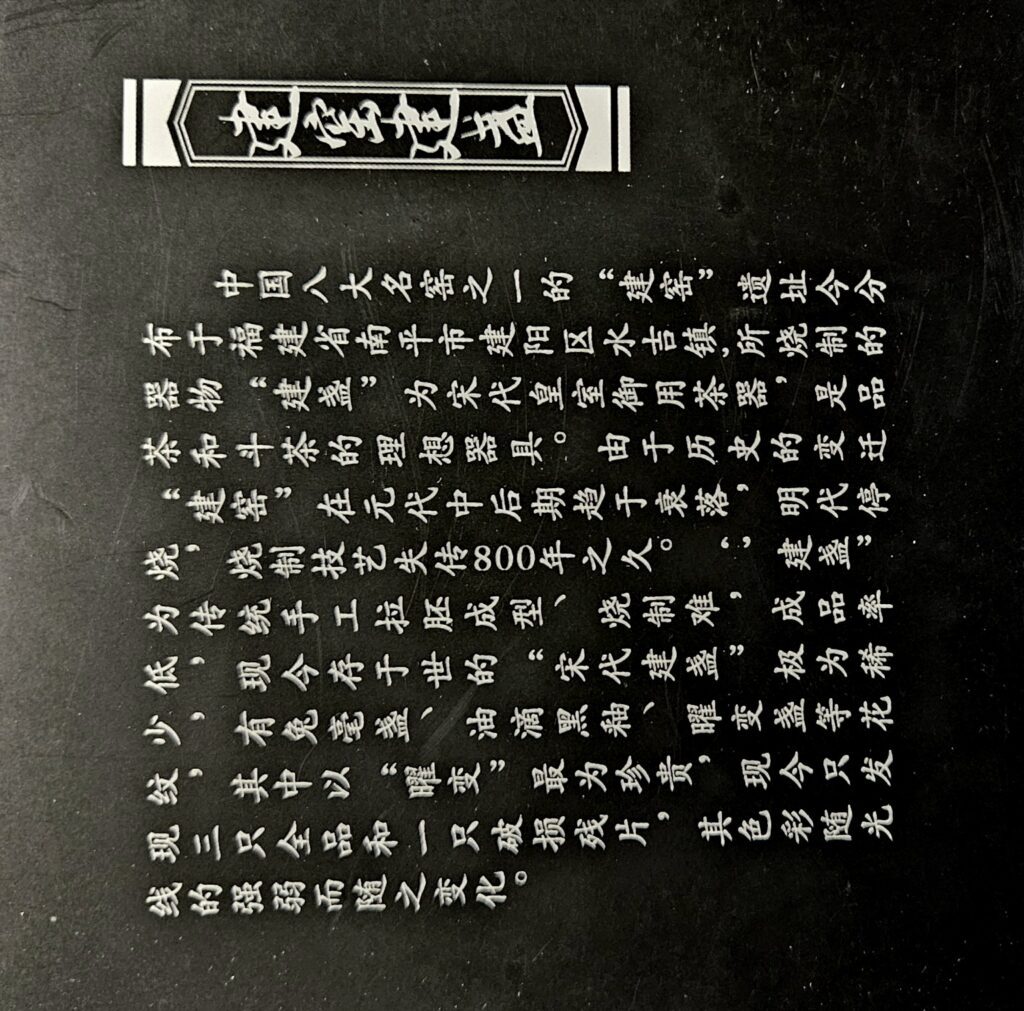 建窑建盏
中国八大名窑之一的“建窑”遗址今分
布于福建省南平市建阳区水吉镇,所烧制的
器物“建盏”为宋代皇室御用茶器，是品
茶和斗茶的理想器具。由于历史的变迁
“建窑”在元代中后期趋于衰落，明代停
烧，烧制技艺失传800年之久。“建盏”
为传统手工拉胚成型、烧制难，成品率
低，现今存于世的“宋代建盏”极为稀
少，有兔毫盏、油滴黑釉、曜变盏等花
纹，其中以“曜变”最为珍贵，现今只发
现三只全品和一只破损残片，其色彩随光
线的强弱而随之变化。